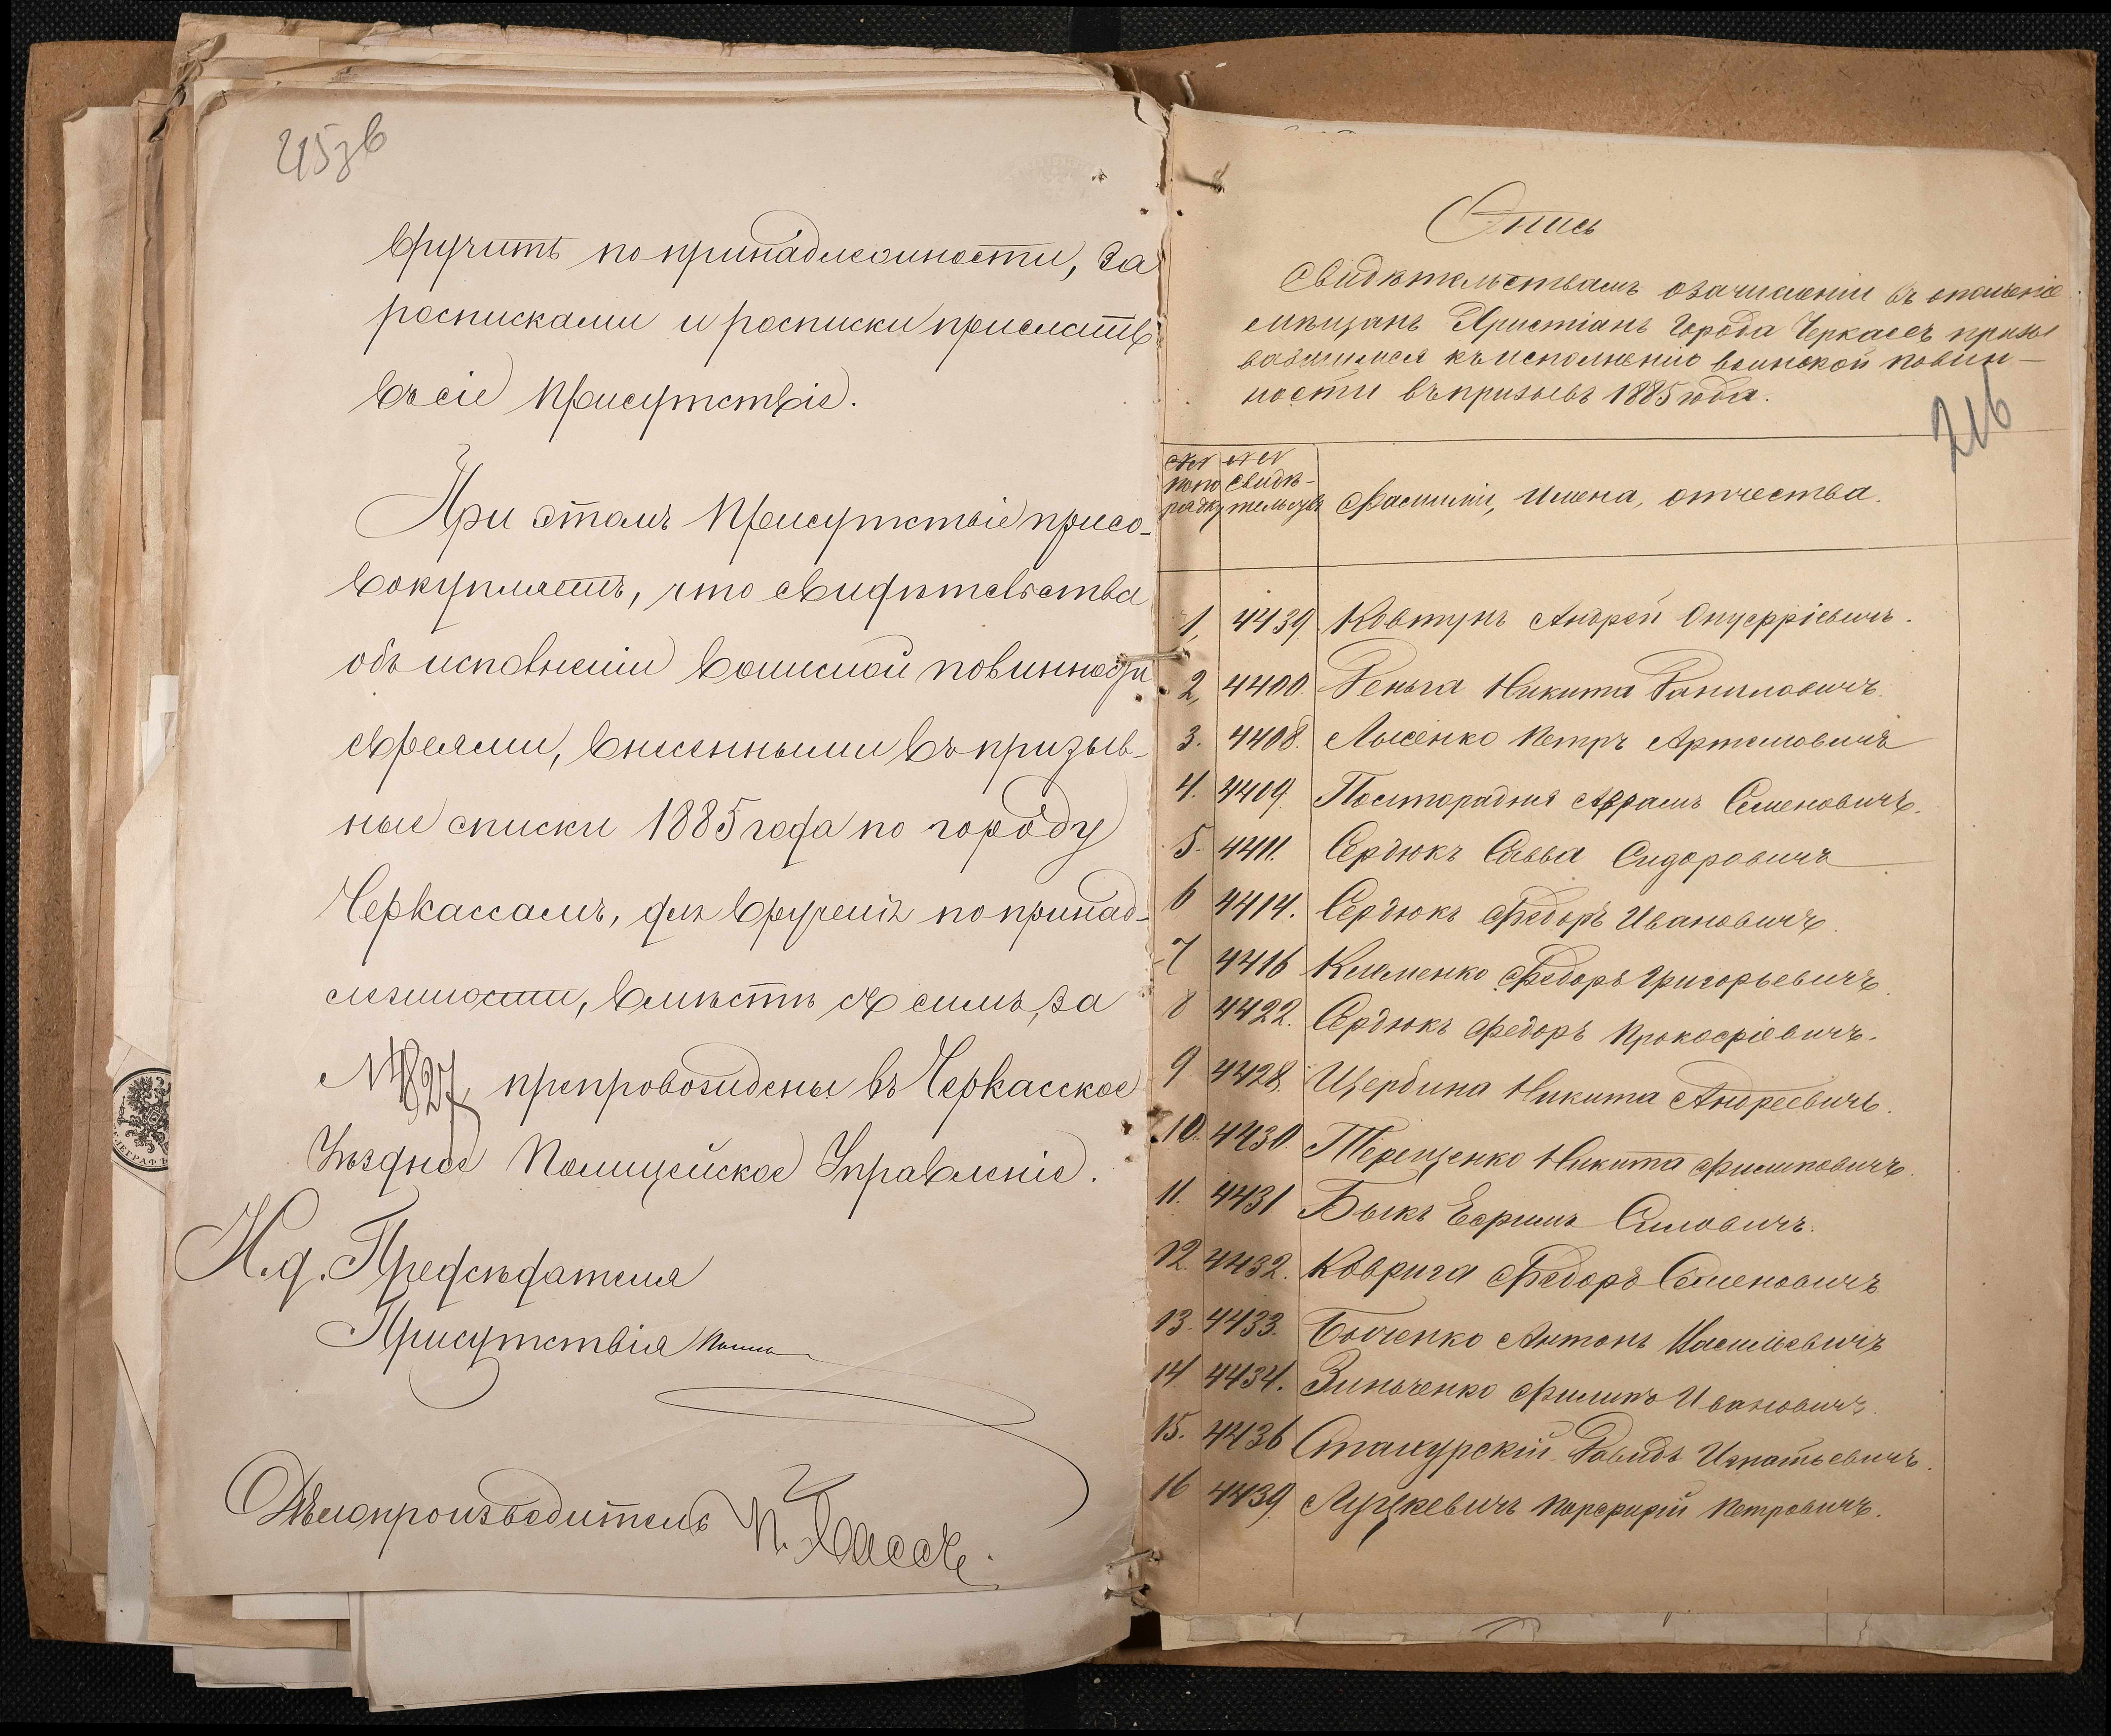 215 зв
вручить по принадлежности, за
росписками и росписки прислать
въ сіе Присутствіе.
При этомъ Присутствіе присо-
вокупляетъ, что свидѣтельства
объ исполненіи воинской повинности
евреями, внесенными въ призыв-
ные списки 1885 года по городу
Черкассамъ, для врученія по принад-
лежности, вмѣстѣ съ симъ, за
№ 4827, препровождены въ Черкасское
Уѣздное Полицейское Управленіе.
И. д. Предсѣдателя
Присутствія
Дѣлопроизводитель
216
Опись
Свидѣтельствамъ о зачисленіи въ ополченіе
мѣщанъ Христіанъ города Черкассъ призы
вавшимся къ исполненію воинской повин-
ности въ призывъ 1885 года.
№№ по по рядку
№№ свидѣ-тельствъ
Фамиліи, имена, отчества.
1, 4439 Ковтунъ Андрей Онуфріевичъ.
2, 4400. Деньга Никита Даниловичъ.
3. 4408. Лысенко Петръ Артемовичъ
4. 4409. Посторадня Абрамъ Семеновичъ.
5. 4411. Сердюкъ Савва Сидоровичъ
6 4414. Сердюкъ Федоръ Ивановичъ.
7 4416 Клименко Федоръ Григорьевичъ.
8 4422. Сердюкъ Федоръ Прокофіевичъ.
9 4428. Щербина Никита Андреевичъ.
10. 4430. Терещенко Никита Филиповичъ.
11. 4431 Быкъ Ефимъ Симовичъ.
12 4432. Коврига Федоръ Семеновичъ
13. 4433. Бойченко Антонъ Васильевичъ
14 4434. Зинченко Филипъ Ивановичъ.
15. 4436 Стахурскій Давидъ Игнатьевичъ.
16 4439. Луцкевичъ Порфирій Петровичъ.